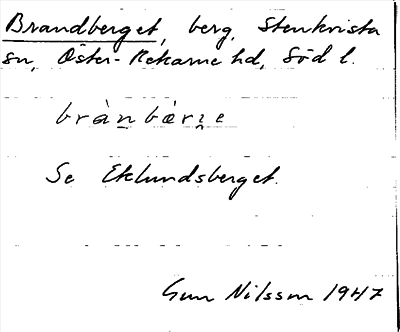 Brandberget, berg, Stenkvista
sn, Öster-Rekarne hd, Södl.
brànbærɪe
Se Eklundsberget.
Gun Nilsson 1947